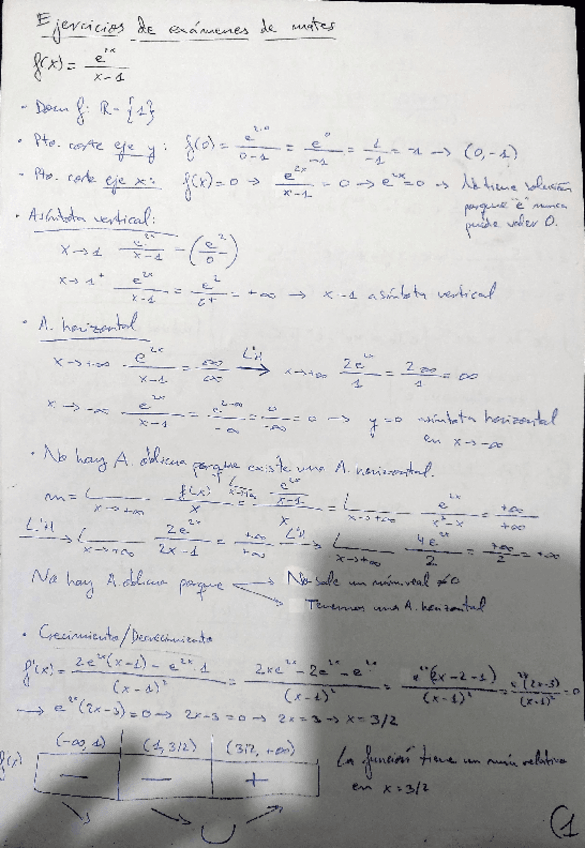 Ejercicios de exámenes de mates
f(x) = e^2x / x-1
· Dom f: R - {1}
· Pto. corte eje y: f(0) = e^2·0 / 0-1 = e^0 / -1 = 1 / -1 = -1 → (0, -1)
· Pto. corte eje x: f(x) = 0 → e^2x / x-1 = 0 → e^2x = 0 → No tiene solución
porque "e" nunca
puede valer 0.
· Asíntota vertical:
x→1 e^2x / x-1 = (e^2 / 0)
x→1^+ e^2x / x-1 = e^2 / 0^+ = +∞ → x=1 asíntota vertical
· A. horizontal
x→+∞ e^2x / x-1 = ∞ / ∞ L'H → x→+∞ 2e^2x / 1 = 2∞ / 1 = ∞
x→-∞ e^2x / x-1 = e^2·-∞ / -∞ = 0 / -∞ = 0 → y=0 asíntota horizontal
en x→-∞
· No hay A. oblicua porque existe una A. horizontal.
m = L x→+∞ f(x) / x = L x→+∞ e^2x / x-1 / x = L x→+∞ e^2x / x^2-x = +∞ / +∞
L'H → L x→+∞ 2e^2x / 2x-1 = +∞ / +∞ L'H → L x→+∞ 4e^2x / 2 = +∞ / 2 = +∞
No hay A. oblicua porque → No sale un núm. real ≠ 0
→ Tenemos una A. horizontal
· Crecimiento/Decrecimiento
f'(x) = 2e^2x (x-1) - e^2x · 1 / (x-1)^2 = 2xe^2x - 2e^2x - e^2x / (x-1)^2 = e^2x (2x-2-1) / (x-1)^2 = e^2x (2x-3) / (x-1)^2 = 0
→ e^2x (2x-3) = 0 → 2x-3 = 0 → 2x = 3 → x = 3/2
(-∞, 1) (1, 3/2) (3/2, +∞)
f(x) - - +
La función tiene un mín relativo
en x = 3/2
1